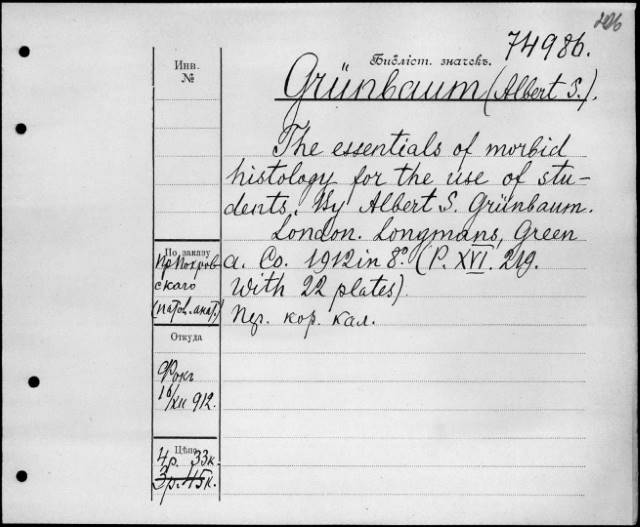 206
74986.
Библіот. значекъ.
Инв.
№
Grünbaum (Albert S.).
The essentials of morbid
histology for the use of stu-
dents. By Albert S. Grünbaum.
London. Longmans, Green
a. Co. 1912 in 8° (P. XVI. 219.
With 22 plates).
кор. кал.
По заказу
Пр Покров
скаго
(патол. анат.)
Откуда
Фокъ
16/XII 912.
Цѣна
4р. 33к.
3р. 45к.